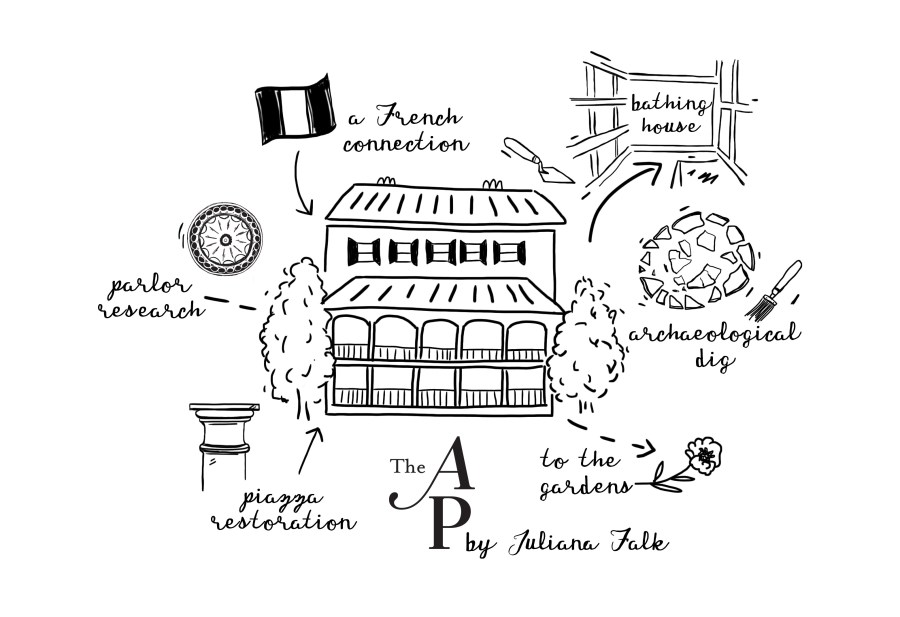 a French
connection
bathing
house
parlor
research
archaeological
dig
piazza
restoration
to the
gardens
The AP
by Juliana Falk